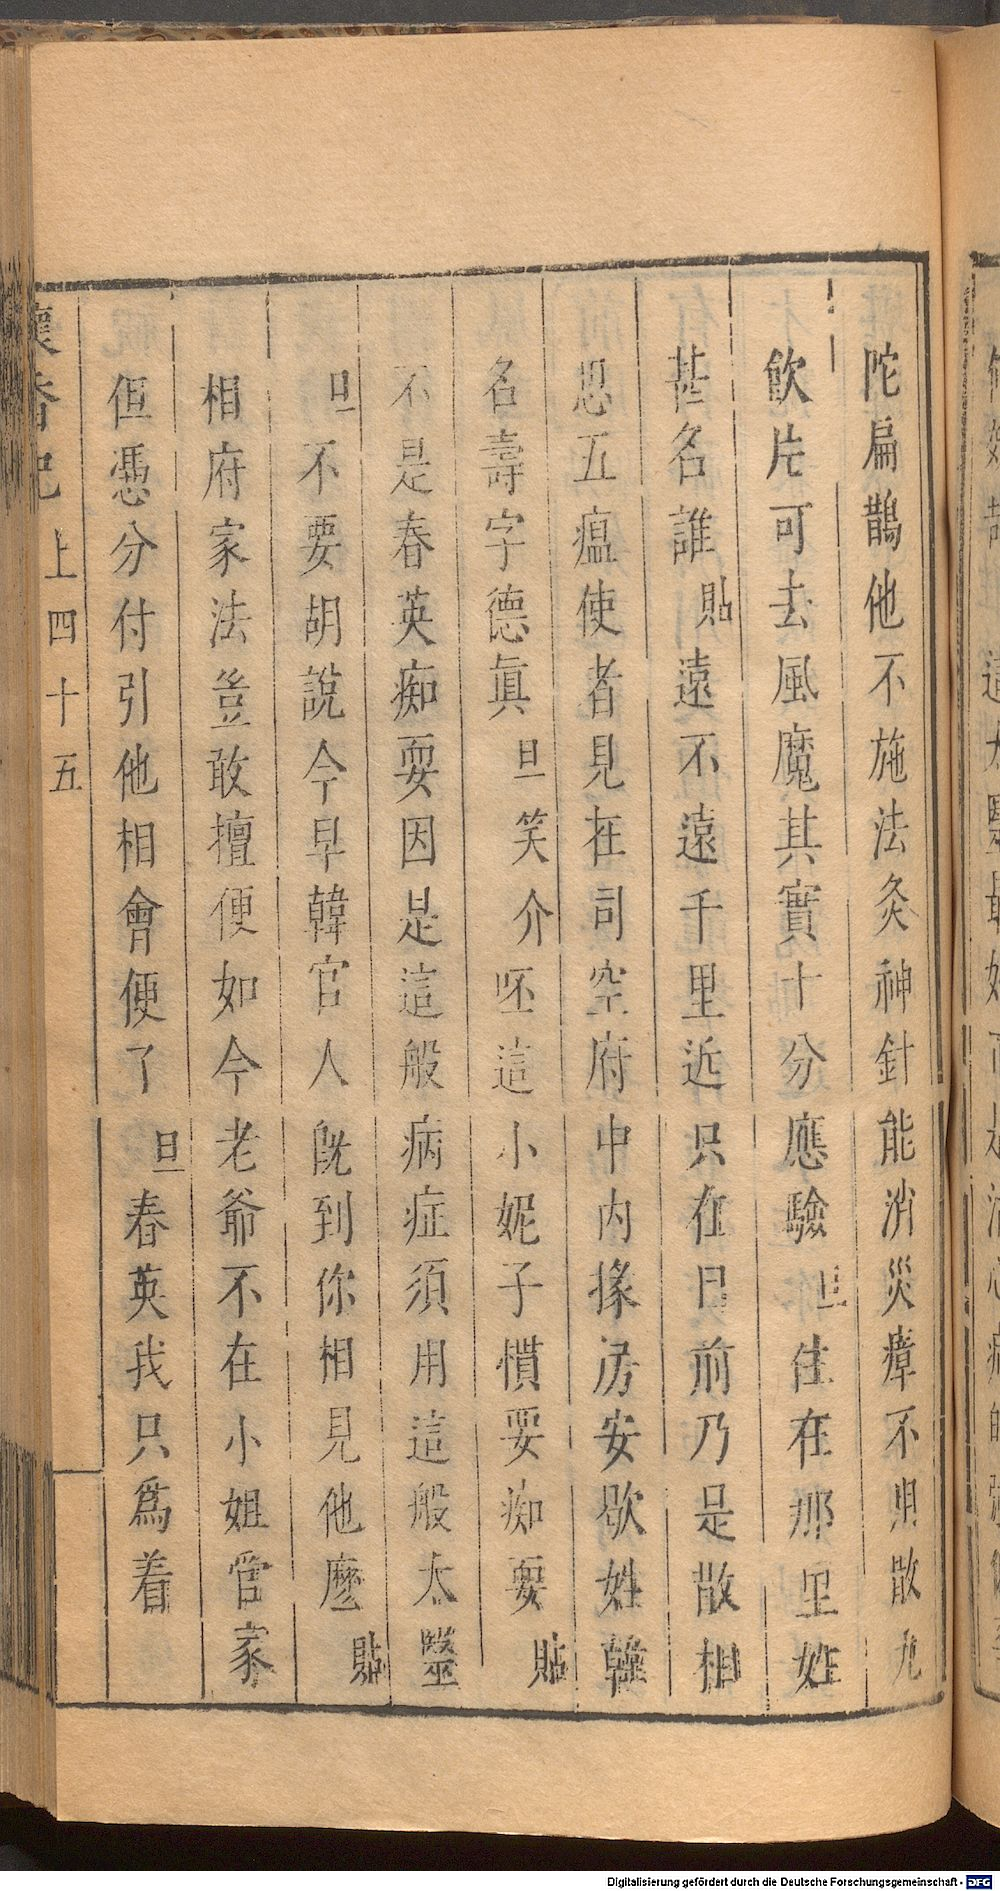 陀扁鵲他不施法灸神針能消災瘴不用散丸
飲片可去風魔其實十分應驗旦住在那里姓
甚名誰貼遠不遠千里近只在目前乃是散相
思五瘟使者見在司空府中内掾房安歇姓韓
名壽字德眞旦笑介呸這小妮子慣耍痴耍貼
不是春英痴耍因是這般病症須用這般太醫
旦不要胡說今早韓官人旣到你相見他麽貼
相府家法豈敢擅便如今老爺不在小姐當家
但憑分付引他相會便了旦春英我只爲着
懷香記 上四十五
Digitalisierung gefördert durch die Deutsche Forschungsgemeinschaft - DFG